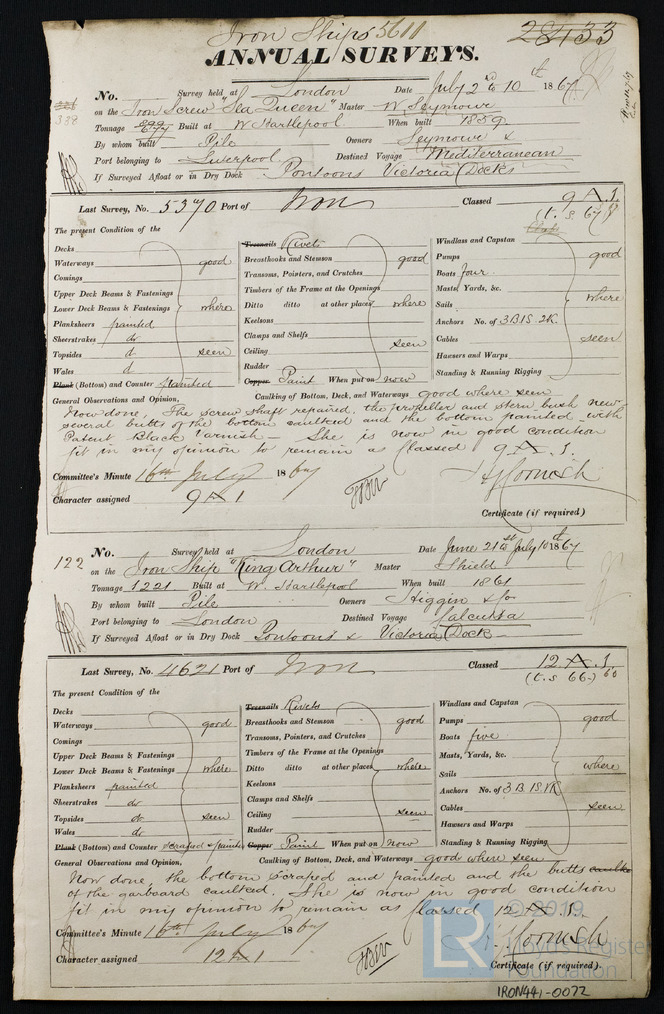 Iron Ships 5611
28133
ANNUAL SURVEYS.
No. Survey held at London Date July 2nd to 10th 1867
338
on the Iron Screw "Sea Queen" Master W Seymour
Tonnage Built at W Hartlepool When built 1859
By whom built Pile Owners Seymour &
Port belonging to Liverpool Destined Voyage Mediterranean
If Surveyed Afloat or in Dry Dock Pontoons Victoria Docks
Last Survey, No. 5370 Port of Iron Classed 9 A 1.
(t.s 67)
The present Condition of the
Decks
Waterways good
Comings
Upper Deck Beams & Fastenings
Lower Deck Beams & Fastenings where
Planksheers painted
Sheerstrakes do
Topsides do seen
Wales do
Plank (Bottom) and Counter painted
Treenails Rivets
Breasthooks and Stemson good
Transoms, Pointers, and Crutches
Timbers of the Frame at the Openings
Ditto ditto at other places where
Keelsons
Clamps and Shelfs
Ceiling seen
Rudder
Copper Paint When put on now
Windlass and Capstan
Pumps good
Boats four
Masts, Yards, &c.
Sails where
Anchors No. of 3B 1S. 2K.
Cables seen
Hawsers and Warps
Standing & Running Rigging
General Observations and Opinion, Caulking of Bottom, Deck, and Waterways good where seen
Now done, The screw shaft repaired, the propeller and stern bush new
several butts of the bottom caulked and the bottom painted with
Patent Black Varnish - She is now in good condition
fit in my opinion to remain as Classed 9 A 1.
Committee's Minute 16th July 1867
Character assigned 9 A 1
Cornish
Certificate (if required)
122
No. Survey held at London Date June 21st to July 10th 1867
on the Iron Ship "King Arthur" Master Shield
Tonnage 1221 Built at W. Hartlepool When built 1861
By whom built Pile Owners Higgin & Co
Port belonging to London Destined Voyage Calcutta
If Surveyed Afloat or in Dry Dock Pontoons & Victoria Dock
Last Survey, No. 4621 Port of Iron Classed 12 A 1.
(t.s 66-)
The present Condition of the
Decks
Waterways good
Comings
Upper Deck Beams & Fastenings
Lower Deck Beams & Fastenings where
Planksheers painted
Sheerstrakes do
Topsides do seen
Wales do
Plank (Bottom) and Counter scraped & painted
Treenails Rivets
Breasthooks and Stemson good
Transoms, Pointers, and Crutches
Timbers of the Frame at the Openings
Ditto ditto at other places where
Keelsons
Clamps and Shelfs
Ceiling seen
Rudder
Copper Paint When put on now
Windlass and Capstan
Pumps good
Boats five
Masts, Yards, &c.
Sails where
Anchors No. of 3B 1S 1K
Cables seen
Hawsers and Warps
Standing & Running Rigging
General Observations and Opinion, Caulking of Bottom, Deck, and Waterways good where seen
Now done, the bottom scraped and painted and the butts caulke
of the garboard caulked. She is now in good condition
fit in my opinion to remain as Classed 12 A 1.
Committee's Minute 16th July 1867
Character assigned 12 A 1
Cornish
Certificate (if required).
LR ©2019
Lloyd's Register
Foundation
IRON441-0072